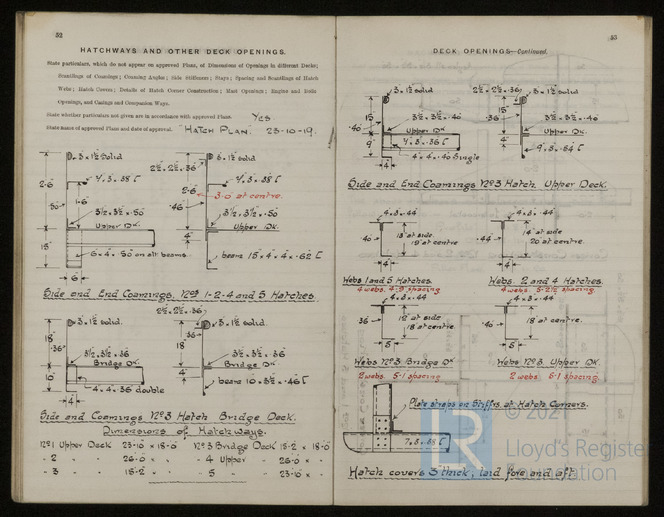 52
HATCHWAYS AND OTHER DECK OPENINGS.
State particulars, which do not appear on approved Plans, of Dimensions of Openings in different Decks;
Scantlings of Coamings; Coaming Angles; Side Stiffeners; Stays; Spacing and Scantlings of Hatch
Webs; Hatch Covers; Details of Hatch Corner Construction; Mast Openings; Engine and Boiler
Openings, and Casings and Companion Ways.
State whether particulars not given are in accordance with approved Plans. Yes
State name of approved Plan and date of approval. "Hatch Plan. 23-10-19.
3 × 1½ Solid
4 . 3 . 38 [
2'-6"
.50
1'-6"
3½ . 3½ × .50
Upper Dk.
15"
6 × 4 . 50 on alt beams
6"
2½ . 2½ . 36
4 . 3 . 38 [
2'-6"
3'-0 at centre.
.46
3½ . 3½ × .50
Upper Dk.
4"
beams 15 × 4 × 4 × .62 [
Side and End Coamings. Nos 1-2-4 and 5 Hatches.
3 × 1½ solid.
18"
.36
3½ . 3½ × 36
Bridge Dk
16"
4 × 4 . 36 double
4
2½ . 2½ . 36
3 × 1½ solid
18"
.36
3½ × 3½ . 36
Bridge Dk.
4"
beams 10 × 3½ × .46 [
Side and Coamings No3 Hatch Bridge Deck.
Dimensions of Hatchways.
No1 Upper Deck 23-10 × 18-0 No3 Bridge Deck 18-2 × 18-0
- 2 - 26-0 × - 4 Upper - 26-0 × -
- 3 - 18-2 × - 5 - 23-10 × -
53
DECK OPENINGS—Continued.
3 × 1½ solid
15"
.40
3½ . 3½ × .40
Upper Dk
4 . 3 . 36 [
4 × 4 × .40 Single
4
2½ . 2½ . 36
3 × 1½ solid
15"
.36
3½ . 3½ × .40
Upper Dk.
4"
Side and End Coamings No3 Hatch. Upper Deck.
4 × 3 × .44
40
13" at side
19" at centre
4
4 × 3 × .44
.44
14" at side
20" at centre.
4
Webs 1 and 5 Hatches.
Webs. 2 and 4 Hatches.
4 × 3 × .44
36
12" at side
18" at centre
5
4 × 3 × .44
18" at centre.
5
Webs No3 Bridge Dk
Webs No3. Upper Dk.
2 webs 5-1 spacing
2 webs 6-1 spacing
Plate straps on Stiffrs at Hatch Corners.
Hatch covers 3" thick, laid fore and aft.
© 2021
LR
Lloyd's Register
Foundation